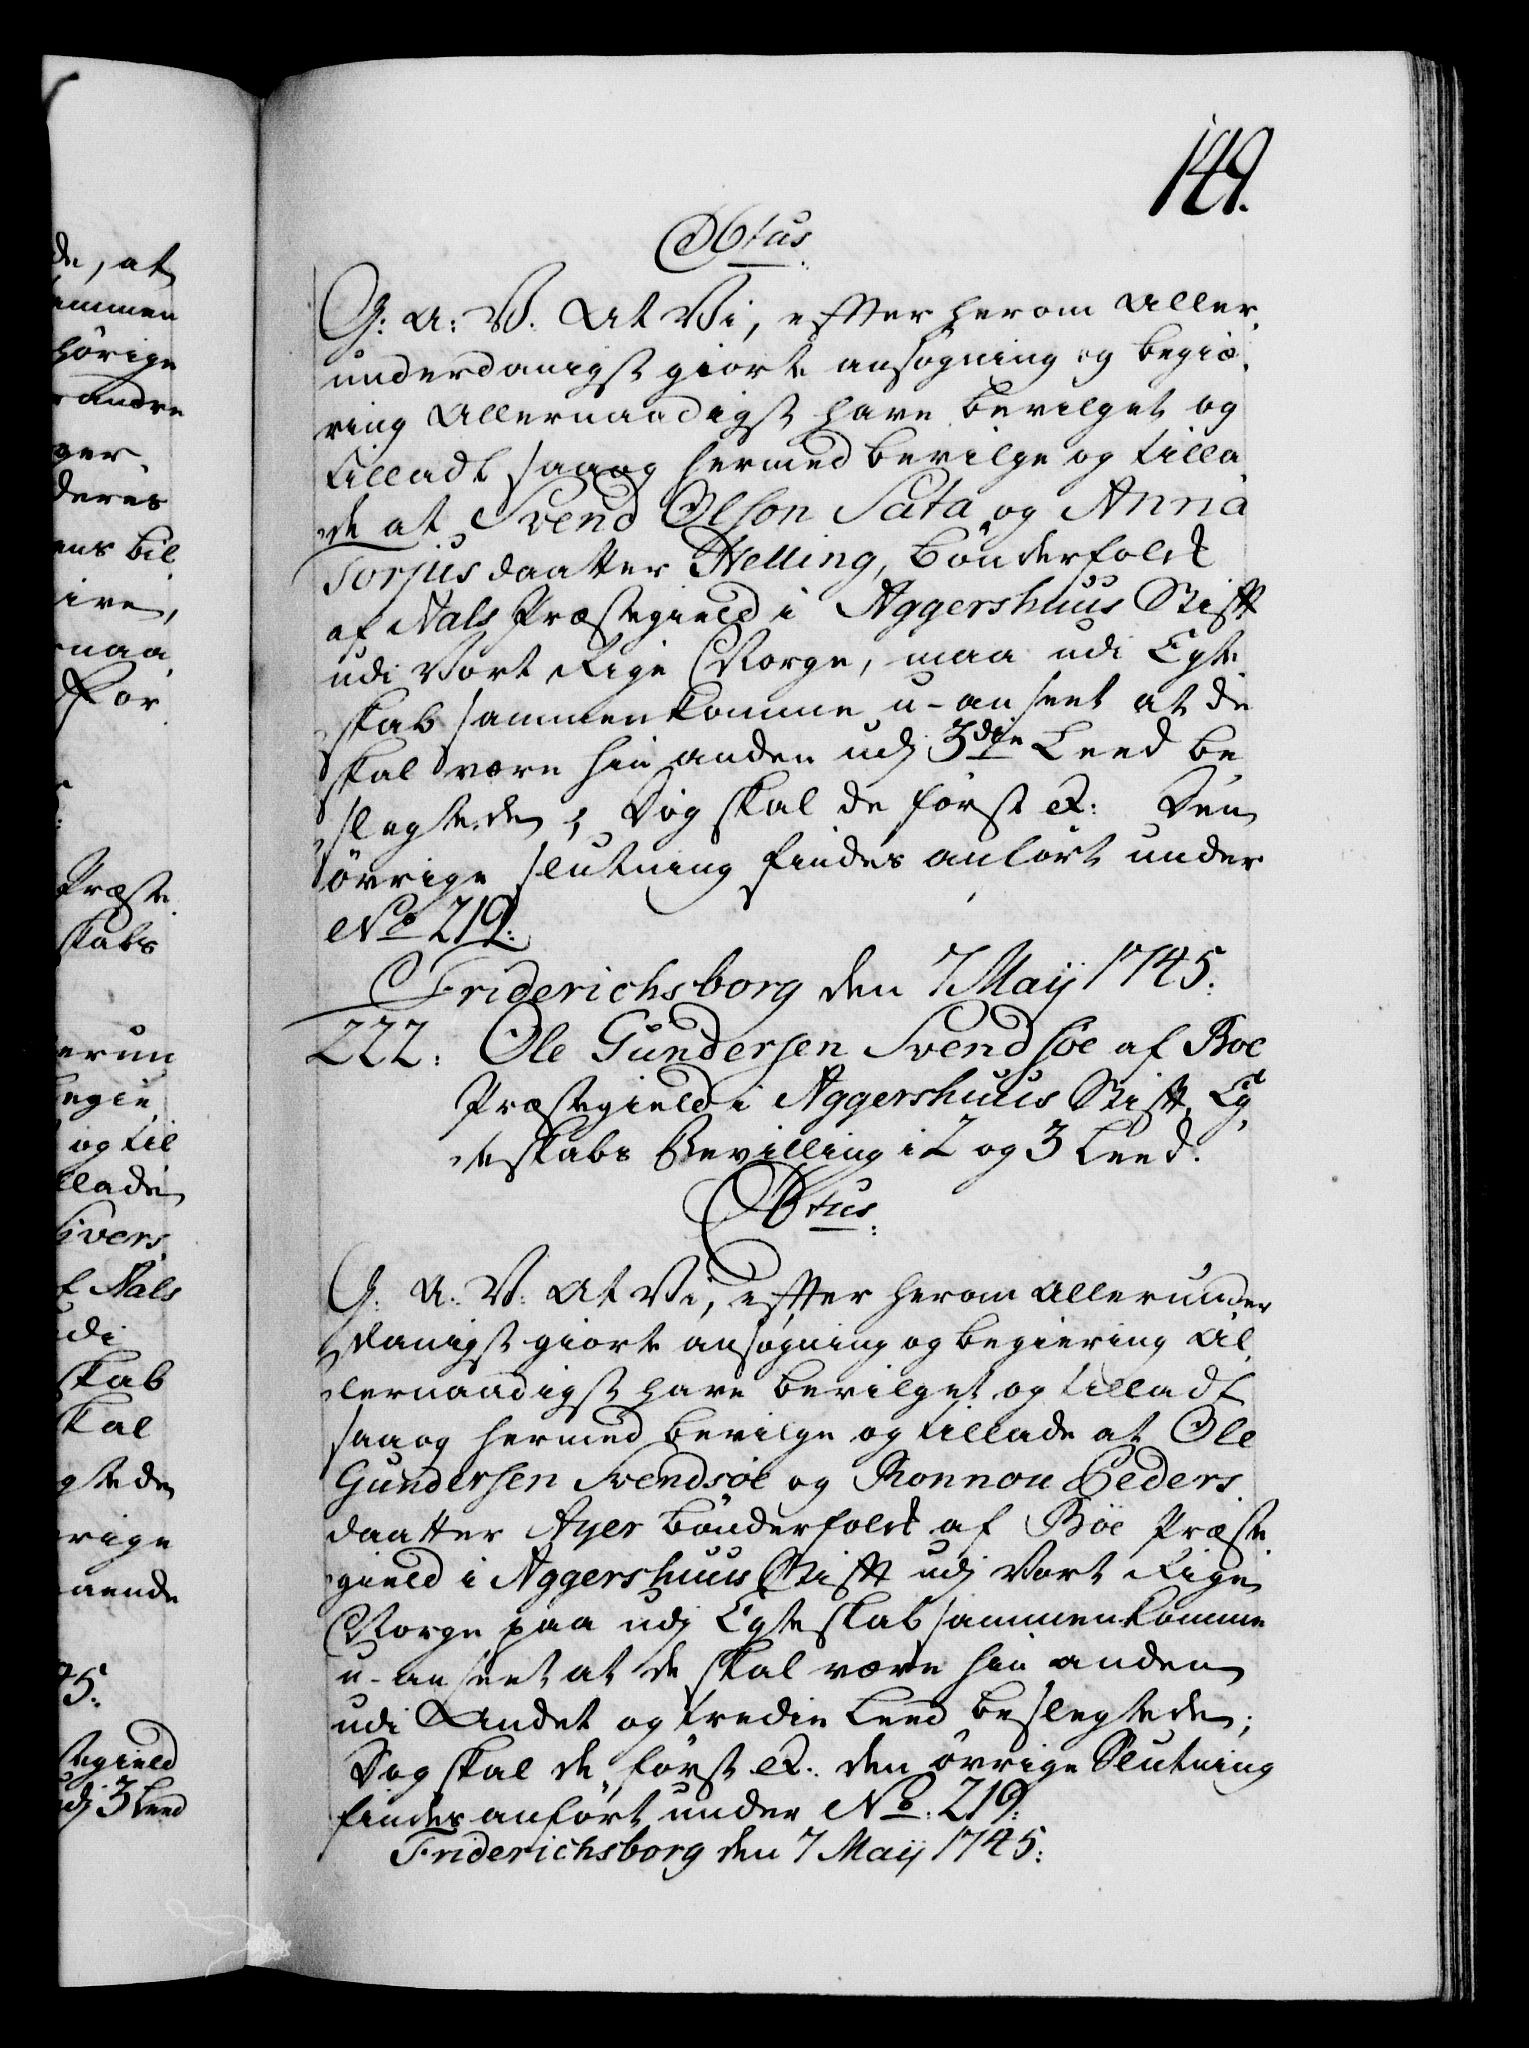 149.
C6tus
G: A: V: At Vi, efter herom Aller,
underdanigst giorte ansøgning og begiæ,
ring Allernaadigst have bevilget og
tilladt saa og hermed bevilge og tilla
de at Svend Olson Sata og Anna
Torjus daatter Helling, bønderfolck
af Aals Præstegield i Aggershuus Stift
udi Vort Rige Norge, maa udi Egte
skab sammenkomme u-anseet at de
skal være hin anden udj 3die Leed be,
slegtede, Dog skal de først &: Den
øvrige slutning findes anført under
No 219:
Friderichsborg den 7 Maij 1745.
222: Ole Gundersen Svendsøe af Boe
Præstegield i Aggershuus Stift, Eg,
teskabs Bevilling i 2 og 3 Leed.
C6tus
G: A: V: At Vi, efter herom Allerunder
danigst giorte ansøgning og begiering Al,
lernaadigst have bevilget og tilladt
saa og hermed bevilge og tillade at Ole
Gundersen Svendsøe og Ronnou Peders,
daatter Ajer bønderfolck af Bøe Præste,
gield i Aggershuus Stift udj Vort Rige
Norge paa udj Egteskab sammenkomme
u-anseet at de skal være hin anden
udi Andet og tredie Leed beslegtede;
Dog skal de først &. den øvrige Slutning
findes anført under No: 219:
Friderichsborg den 7 Maij 1745:
de, at
ammen
hørige
andre
ger,
deres
ens bil
ive,
naa,
For
Præste
skabs
erun
egie,
og til
llade
Sivers,
f Aals
di
skab
skal
gtede
rige
aende
45:
tegield
dj 3 Leed